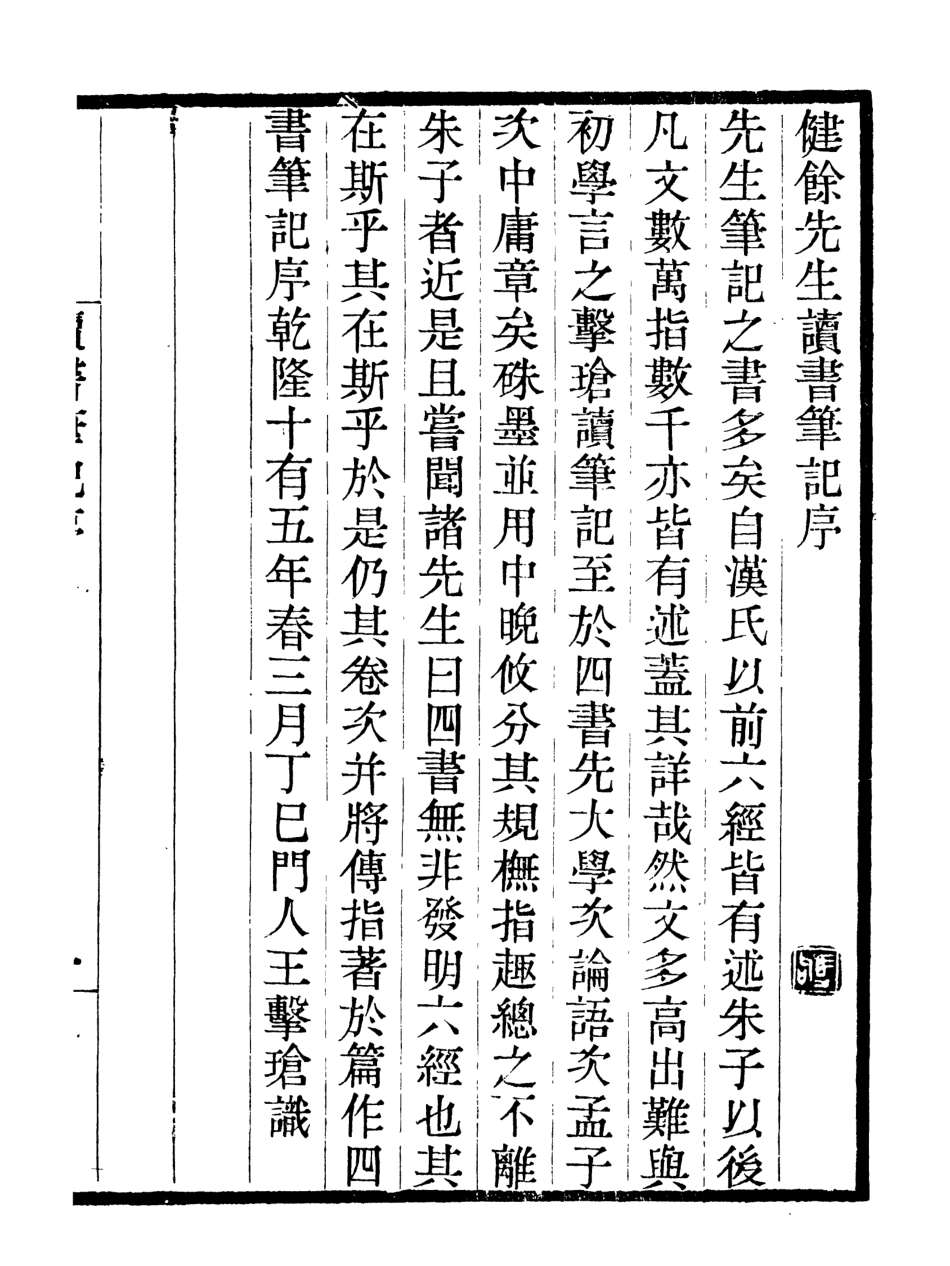 健餘先生讀書筆記序
先生筆記之書多矣自漢氏以前六經皆有述朱子以後
凡文數萬指數千亦皆有述蓋其詳哉然文多高出難與
初學言之擊瑲讀筆記至於四書先大學次論語次孟子
次中庸章矣硃墨並用中晚攸分其規橅指趣總之不離
朱子者近是且嘗聞諸先生曰四書無非發明六經也其
在斯乎其在斯乎於是仍其卷次并將傳指著於篇作四
書筆記序乾隆十有五年春三月丁巳門人王擊瑲識